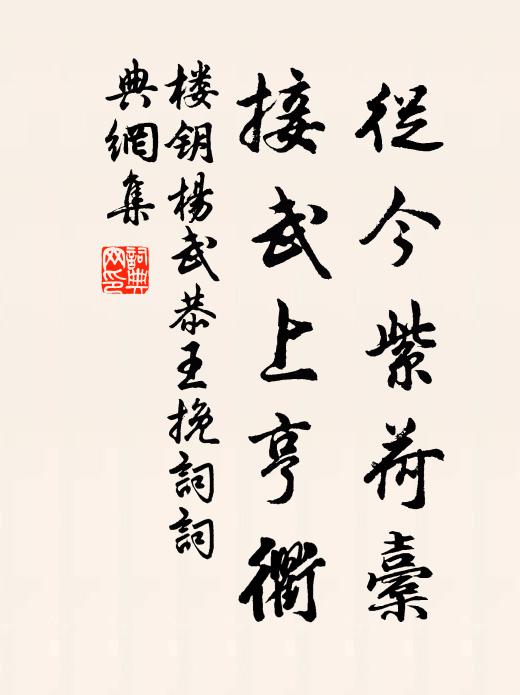 從今紫荷橐
接武上亨衢
楼钥楊武恭王挽詞詞
典網集
詞典網印